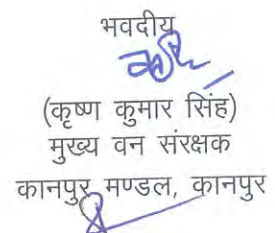 भवदीय
(कृष्ण कुमार सिंह)
मुख्य वन संरक्षक
कानपुर मण्डल, कानपुर